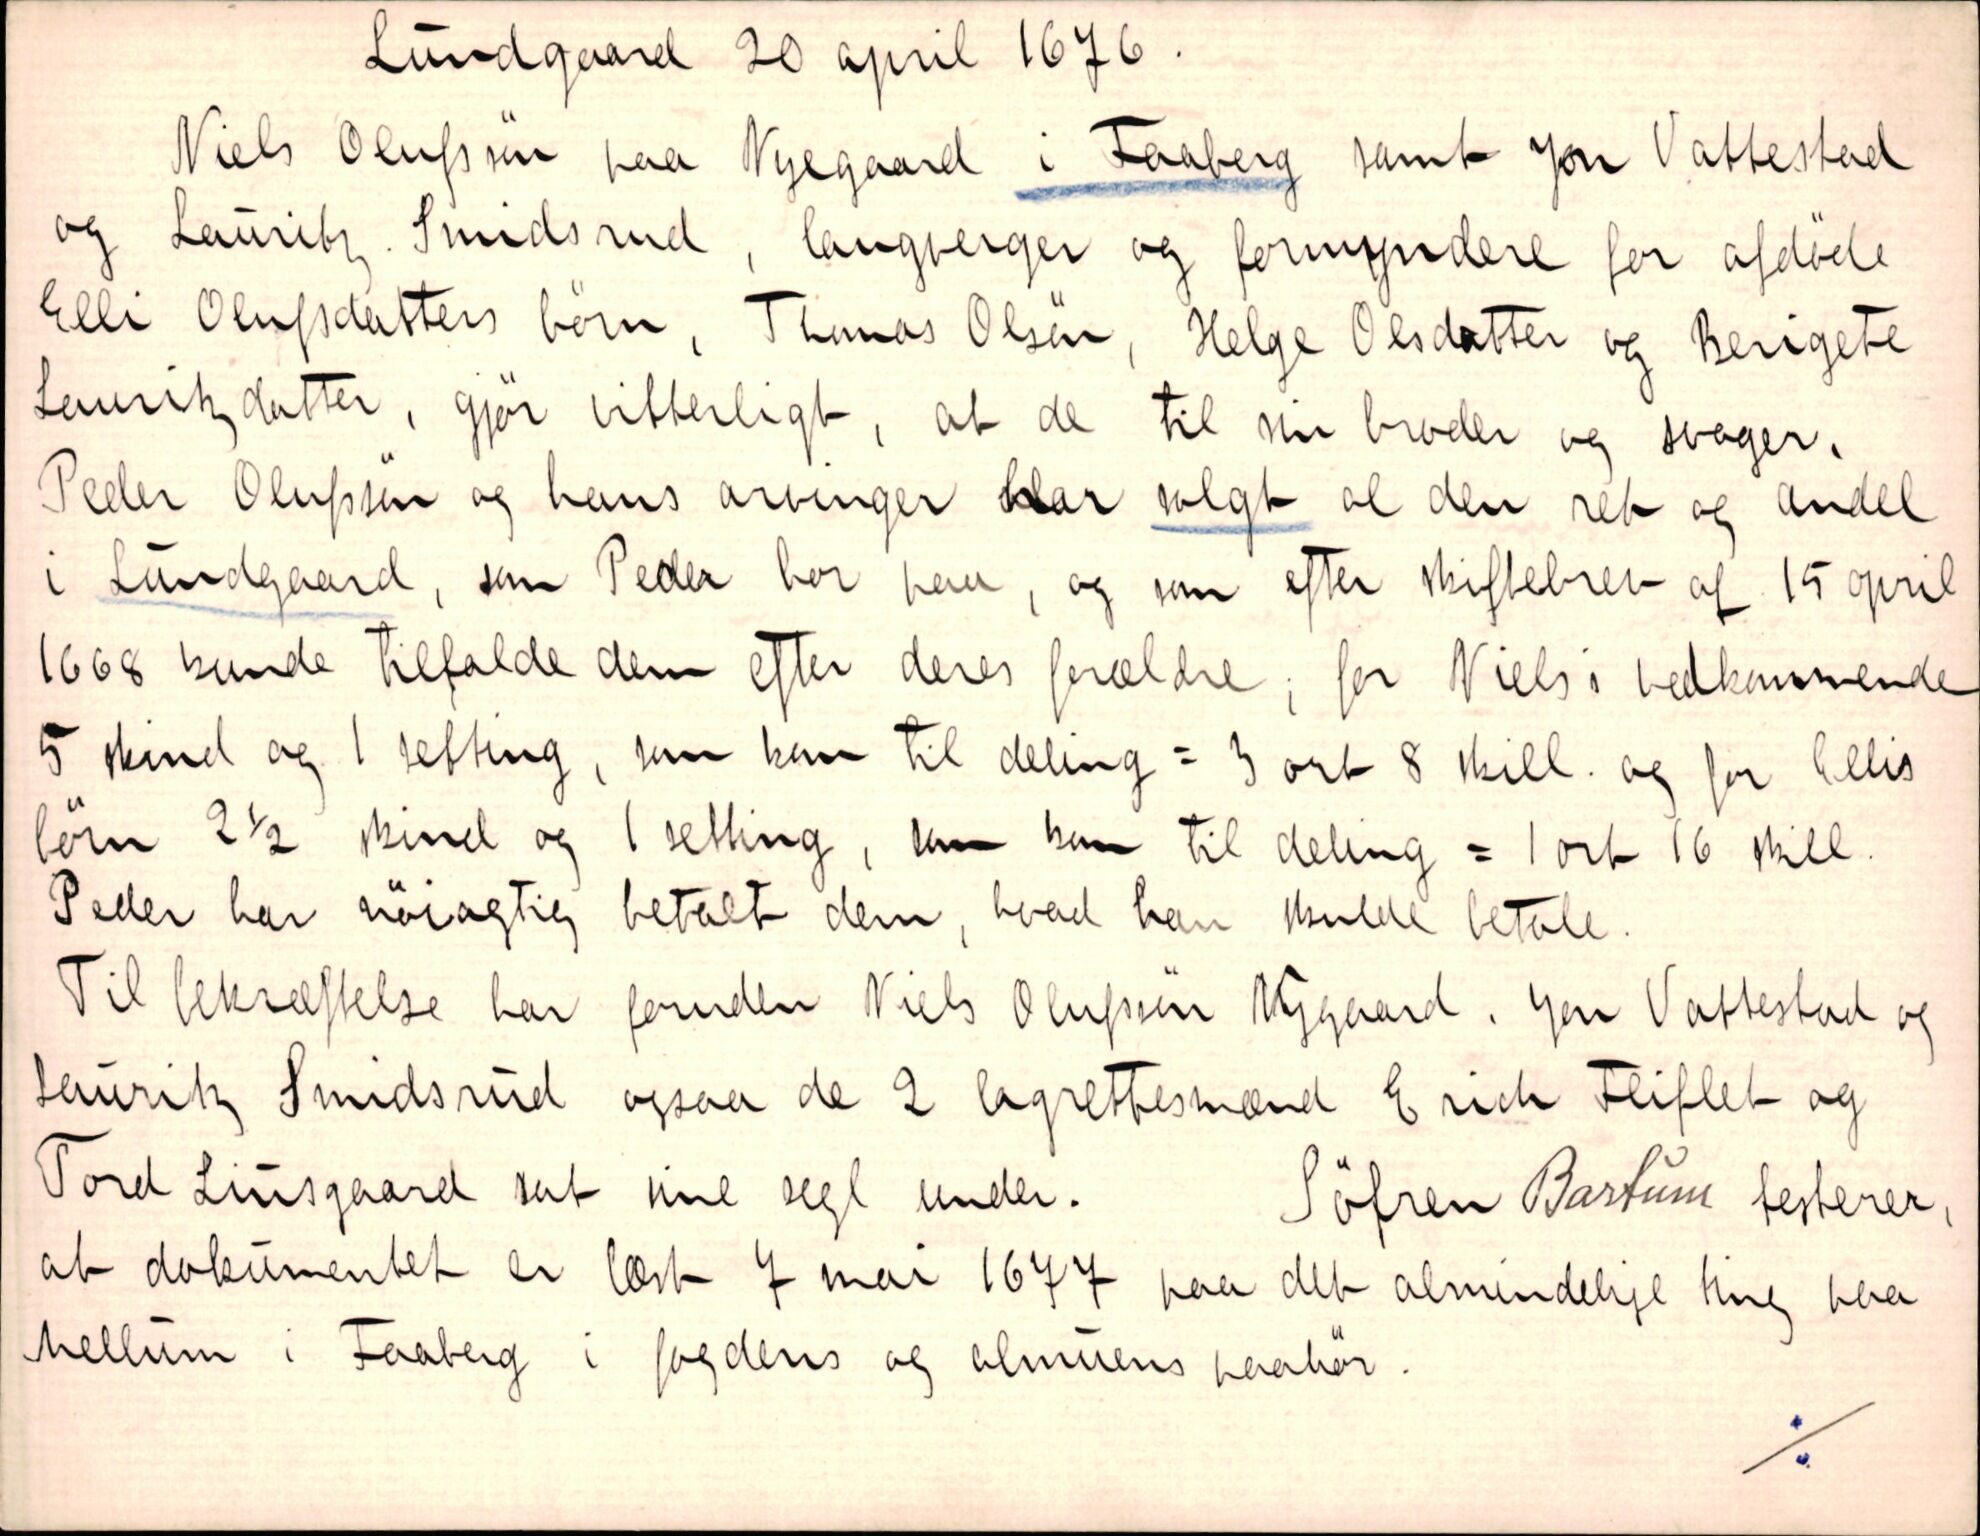 Lundgaard 20 april 1676.
Niels Olufssön paa Nyegaard i Faaberg samt Jon Vattestad
og Lauritz Smidsrud, laugverger og formyndere for afdöde
Elli Olufsdatters börn, Thomas Olsön, Helge Olsdatter og Berigete
Lauritzdatter, gjör vitterligt, at de til sin broder og svager,
Peder Olufssön og hans arvinger har solgt al den ret og andel
i Lundgaard, som Peder bor paa, og som efter skiftebrev af 15 april
1668 kunde tilfalde dem efter deres forældre; for Niels's vedkommende
5 skind og 1 setting, som kom til deling = 3 ort 8 skill. og for Ellis
börn 2 1/2 skind og 1 setting, som kom til deling = 1 ort 16 skill.
Peder har nöiagtig betalt dem, hvad han skulde betale.
Til bekræftelse har foruden Niels Olufssön Nygaard, Jon Vattestad og
Lauritz Smidsrud ogsaa de 2 lagrettesmænd Erich Fliflet og
Tord Liusgaard sat sine segl under. Söfren Bartum testerer,
at dokumentet er læst 7 mai 1677 paa det almindelige ting paa
Mellum i Faaberg i fogdens og almuens paahör.